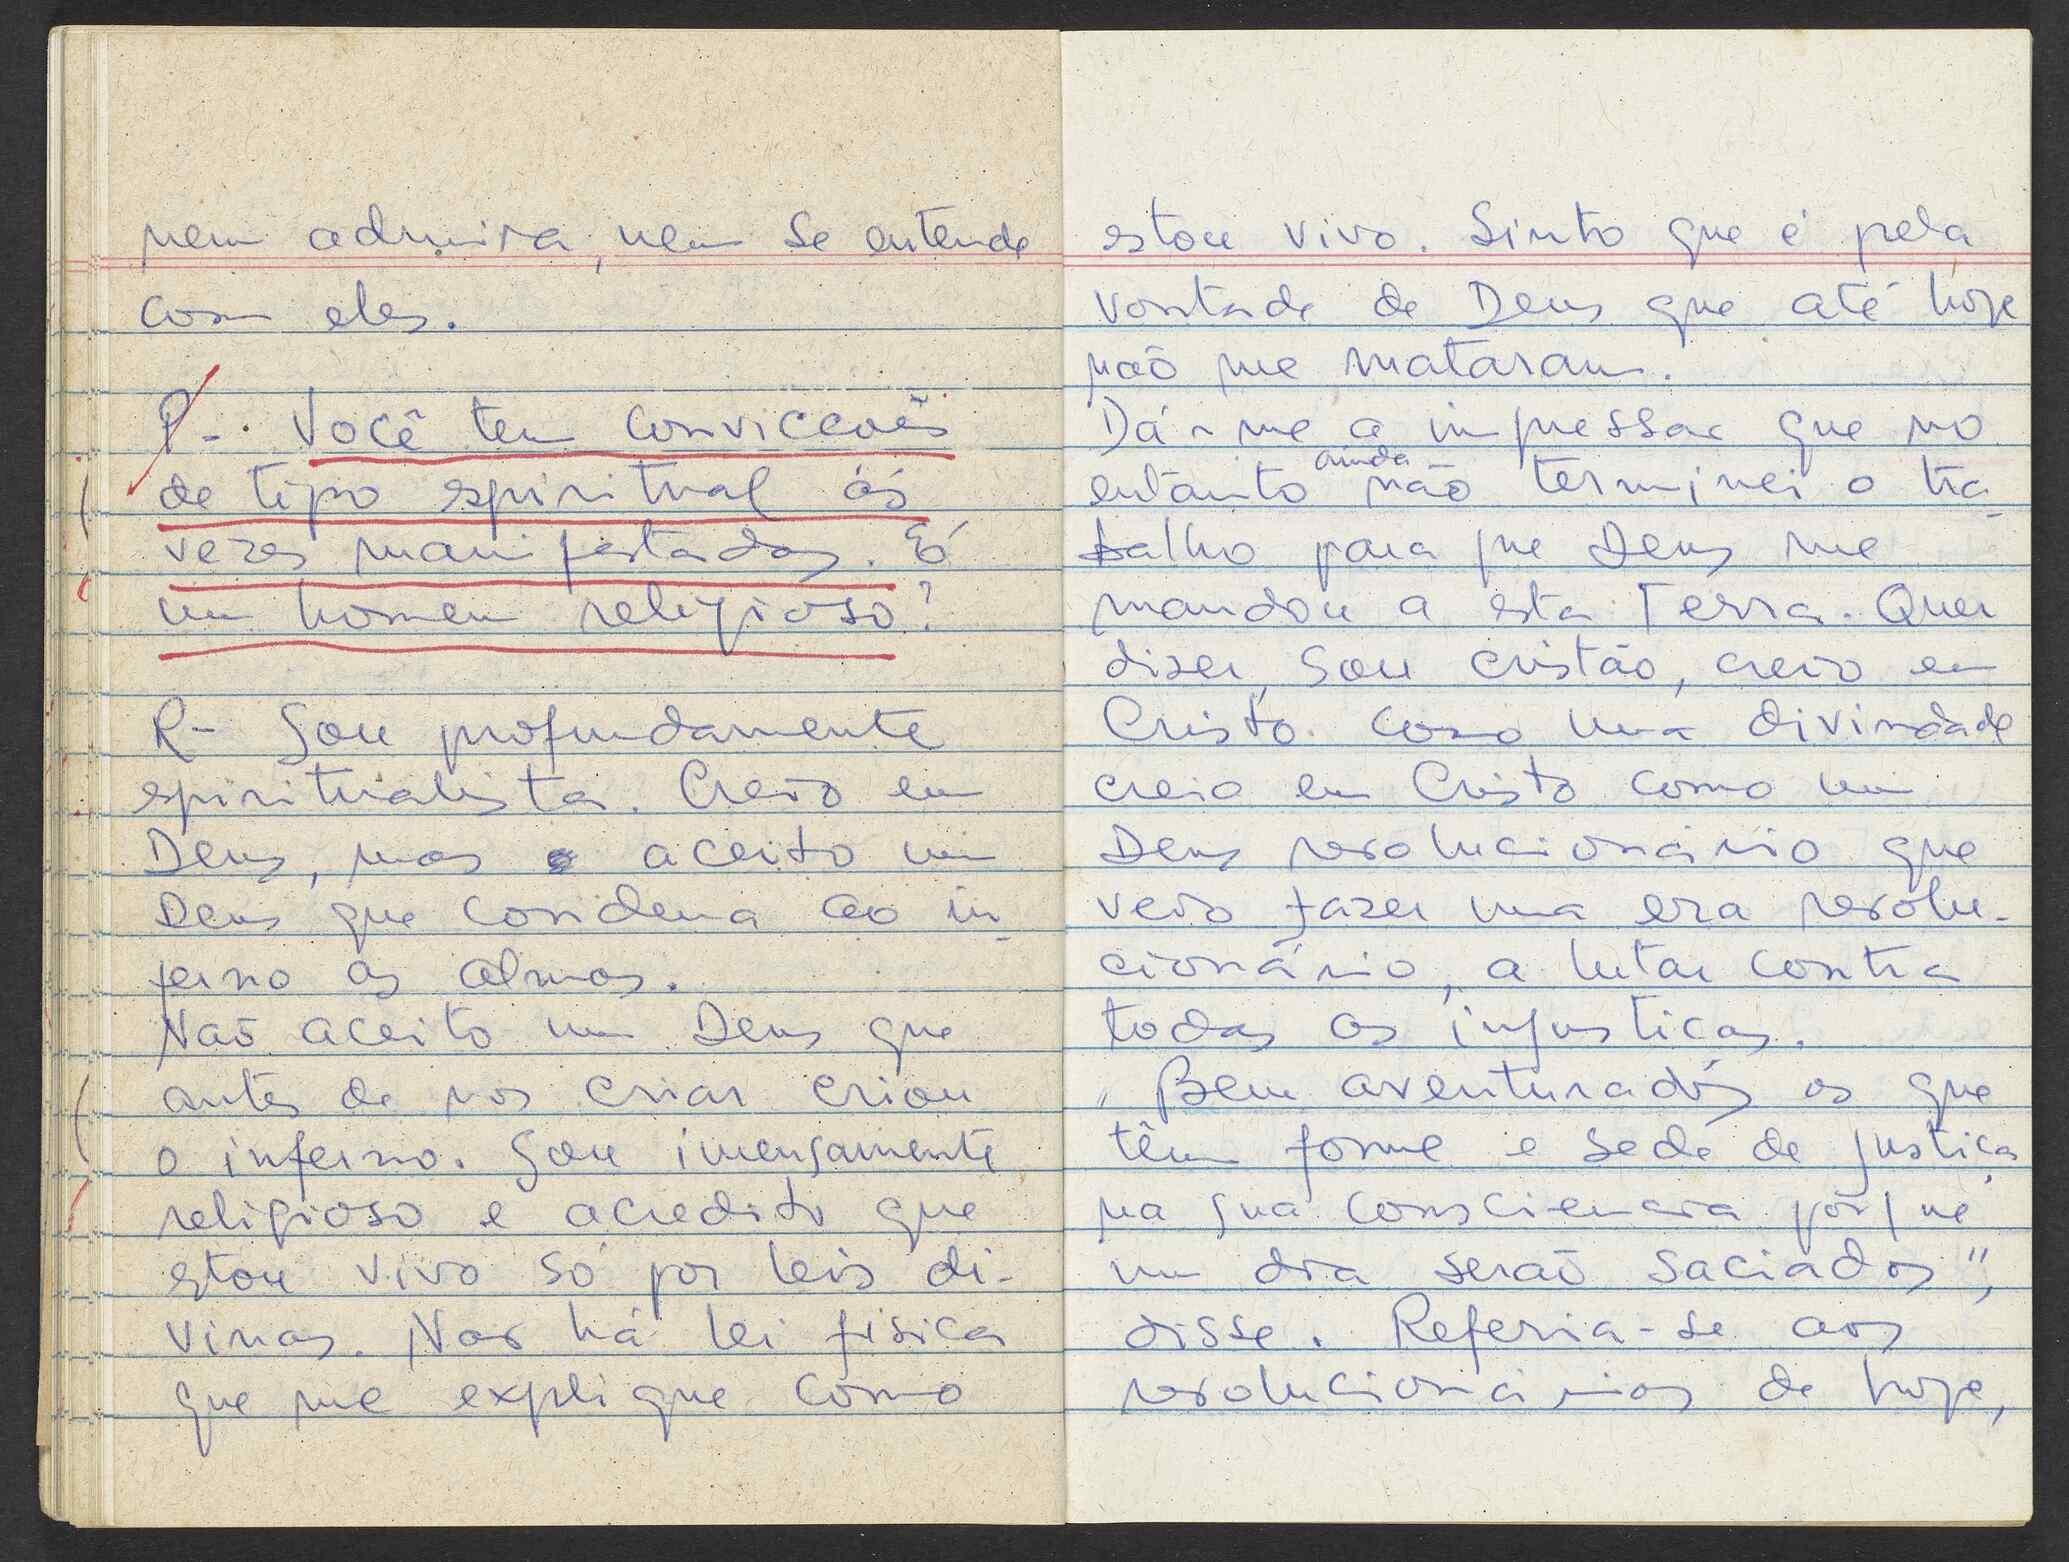 nem admira, nem se entende
com eles.
P-. Você tem convicções
de tipo espiritual ás
vezes manifestadas. É
um homem religioso?
R- Sou profundamente
espiritualista. Creio em
Deus, mas aceito um
Deus que condena ao in-
ferno as almas.
Não aceito um Deus que
antes de nos criar criou
o inferno. Sou imensamente
religioso e acredito que
estou vivo só por leis di-
vinas. Nao há lei fisica
que me explique como
estou vivo. Sinto que é pela
vontade de Deus que até hoje
não me mataram.
Dá-me a impressao que no
entanto ainda não terminei o tra-
balho para que Deus me
mandou a esta Terra. Quer
dizer, sou cristão, creio em
Cristo como uma divindade
creio em Cristo como um
Deus revolucionário que
veio fazer uma era revolu-
cionário, a lutar contra
todas as injusticas.
"Bem aventurados os que
têm fome e sede de justica
na sua consciencia porque
um dia serão saciados",
disse. Referia-se aos
revolucionários de hoje,